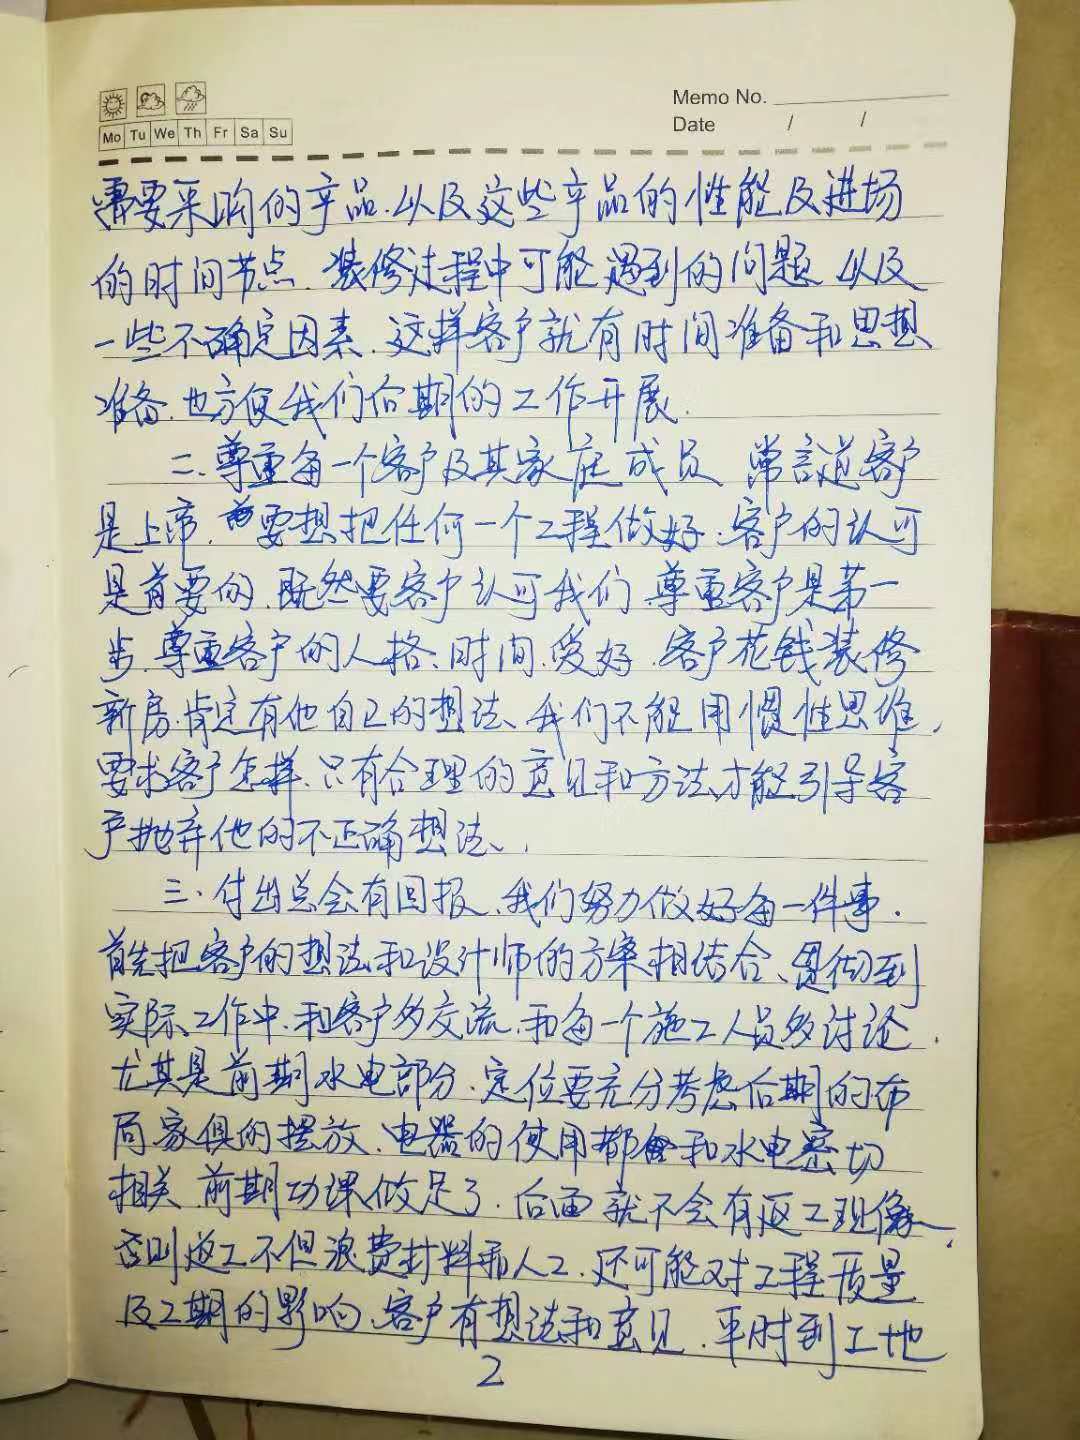 Memo No.
Date / /
Mo Tu We Th Fr Sa Su
需要采购的产品.以及这些产品的性能及进场
的时间节点.装修过程中可能遇到的问题 以及
一些不确定因素.这样客户就有时间准备和思想
准备.也方便我们后期的工作开展.
二.尊重每一个客户及其家庭成员 常言道客户
是上帝.要想把任何一个工程做好.客户的认可
是首要的.既然要客户认可我们 尊重客户是第一
步.尊重客户的人格、时间.爱好.客户花钱装修
新房.肯定有他自己的想法、我们不能用惯性思维,
要求客户怎样.只有合理的意见和方法才能引导客
户抛弃他的不正确想法、.
三.付出总会有回报、我们努力做好每一件事.
首先把客户的想法和设计师的方案相结合、贯彻到
实际工作中.和客户多交流.和每一个施工人员多讨论.
尤其是前期水电部分.定位要充分考虑后期的布
局家俱的摆放、电器的使用都和水电密切
相关 前期功课做足了.后面就不会有返工现像.
否则返工不但浪费材料和人工.还可能对工程质量
及工期的影响、客户有想法和意见.平时到工地
2